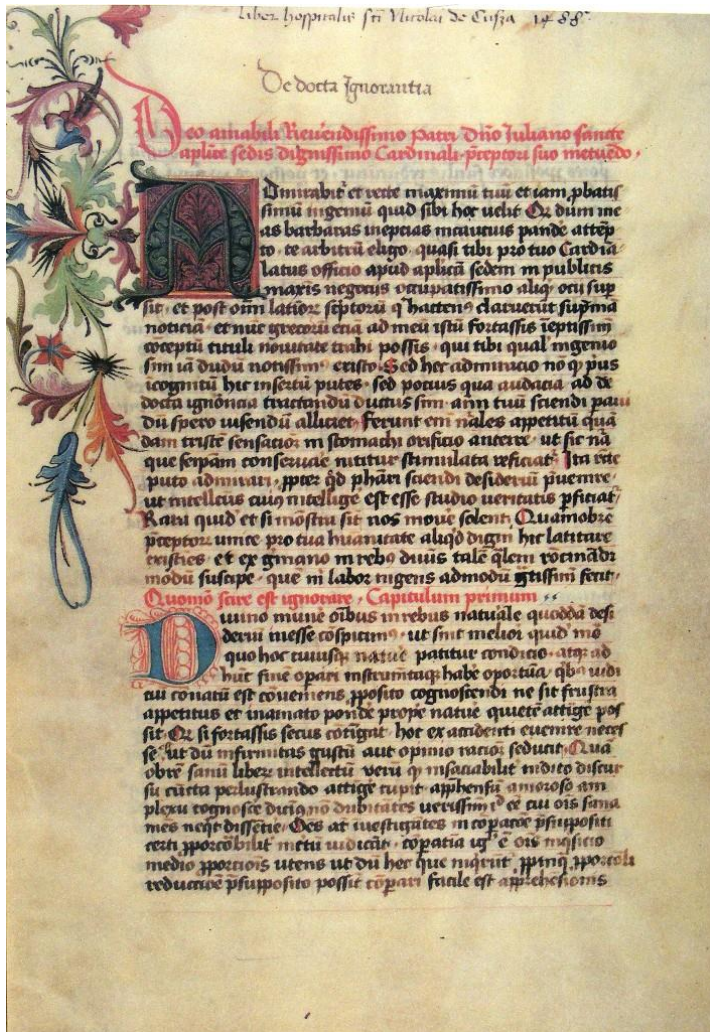 Liber hospitalis sti Nicolai de Cusza 1488
De docta Ignorantia
Deo amabili Reverendissimo patri dno Iuliano sancte
aplice sedis dignissimo Cardinali p̄ceptori suo metuēdo
Admirabit et recte maximū tuū et iam ꝓbatis
simū ingeniū quid sibi hoc velit Q dum me
as barbaras ineptias incautius pandē attēp
to te arbitrū eligo quasi tibi pro tuo Cardīa
latus officio apud aplicā sedem in publicis
maxis negociis occupatissimo aliq ocii sup
sit et post oīm latior sc̄ptorū q hacten claruerūt sup̄mā
noticiā et nūc grecorū eciā ad meū istū fortassis ieptissim
cōceptū tituli novitate trahi possis qui tibi qual ingenio
sim iā dudū notissim existo Sed hec admiracio no q pus
icognitū hic insertū putes sed pocius qua audacia ad de
docta ignōncia tractandū ductus sim aīm tuū sciendi pavi
dū spero visendū alliciet Ferunt em nales appetitū quā
dam tristē sensacior in stomachi orificio anteire ut sic nā
que seip̄am conservare nititur stimulata reficiat Ita recte
puto admirari ꝓpter qd phāri sciendi desideriū p̄uenire
ut intellcus cuiꝰ intelligē est esse studio veritatis ꝑficiat
Rara quid et si mōstra sit nos movē solent Quamobrē
p̄ceptorr unice pro tua huanitate aliqd dignū hic latitare
existies et ex gmano in rebꝰ divīs talē qlem rōcinādi
modū suscipe quē m labor ingens admodū gtissim fecit
Quomō scire est ignorare Capitulum primum
Divino munē oībus in rebus natuale quoddā desi
deriū inesse cōspicimꝰ ut sint melior quid mō
quo hoc cuiusq natuē patitur condicio atq ad
hūc finē opari instrumtaq habē oportūa qbꝰ iudi
ciū cōnatū est cōveniens ꝓposito cognoscendi ne sit frustra
appetitus et in amato pondē prope natuē quietē attigē pos
sit Q si fortassis secus cōtīgat hoc ex accidenti evenire neces
se ut dū infirmitas gustū aut opinio racior seducit Quā
obrē sanū liberū intellectū verū q insaciabilit indito discur
su cūcta perlustrando attigē cupit app̄hensū amoroso am
plexu cognoscē diciꝰ nō dubitātes verissim id eē cui oīs sana
mēs neqt dissentire Oēs at ivestigātes in cōpatōe p̄supposti
certi ꝓporcōbilit incertū iudicāt cōpatia ig ē oīs inqsicio
medio ꝓporciois utens ut dū hec que inqrūt ꝓpinq ꝓporcōli
reductione p̄supposito possīt cōpari facile est app̄rehēsionis